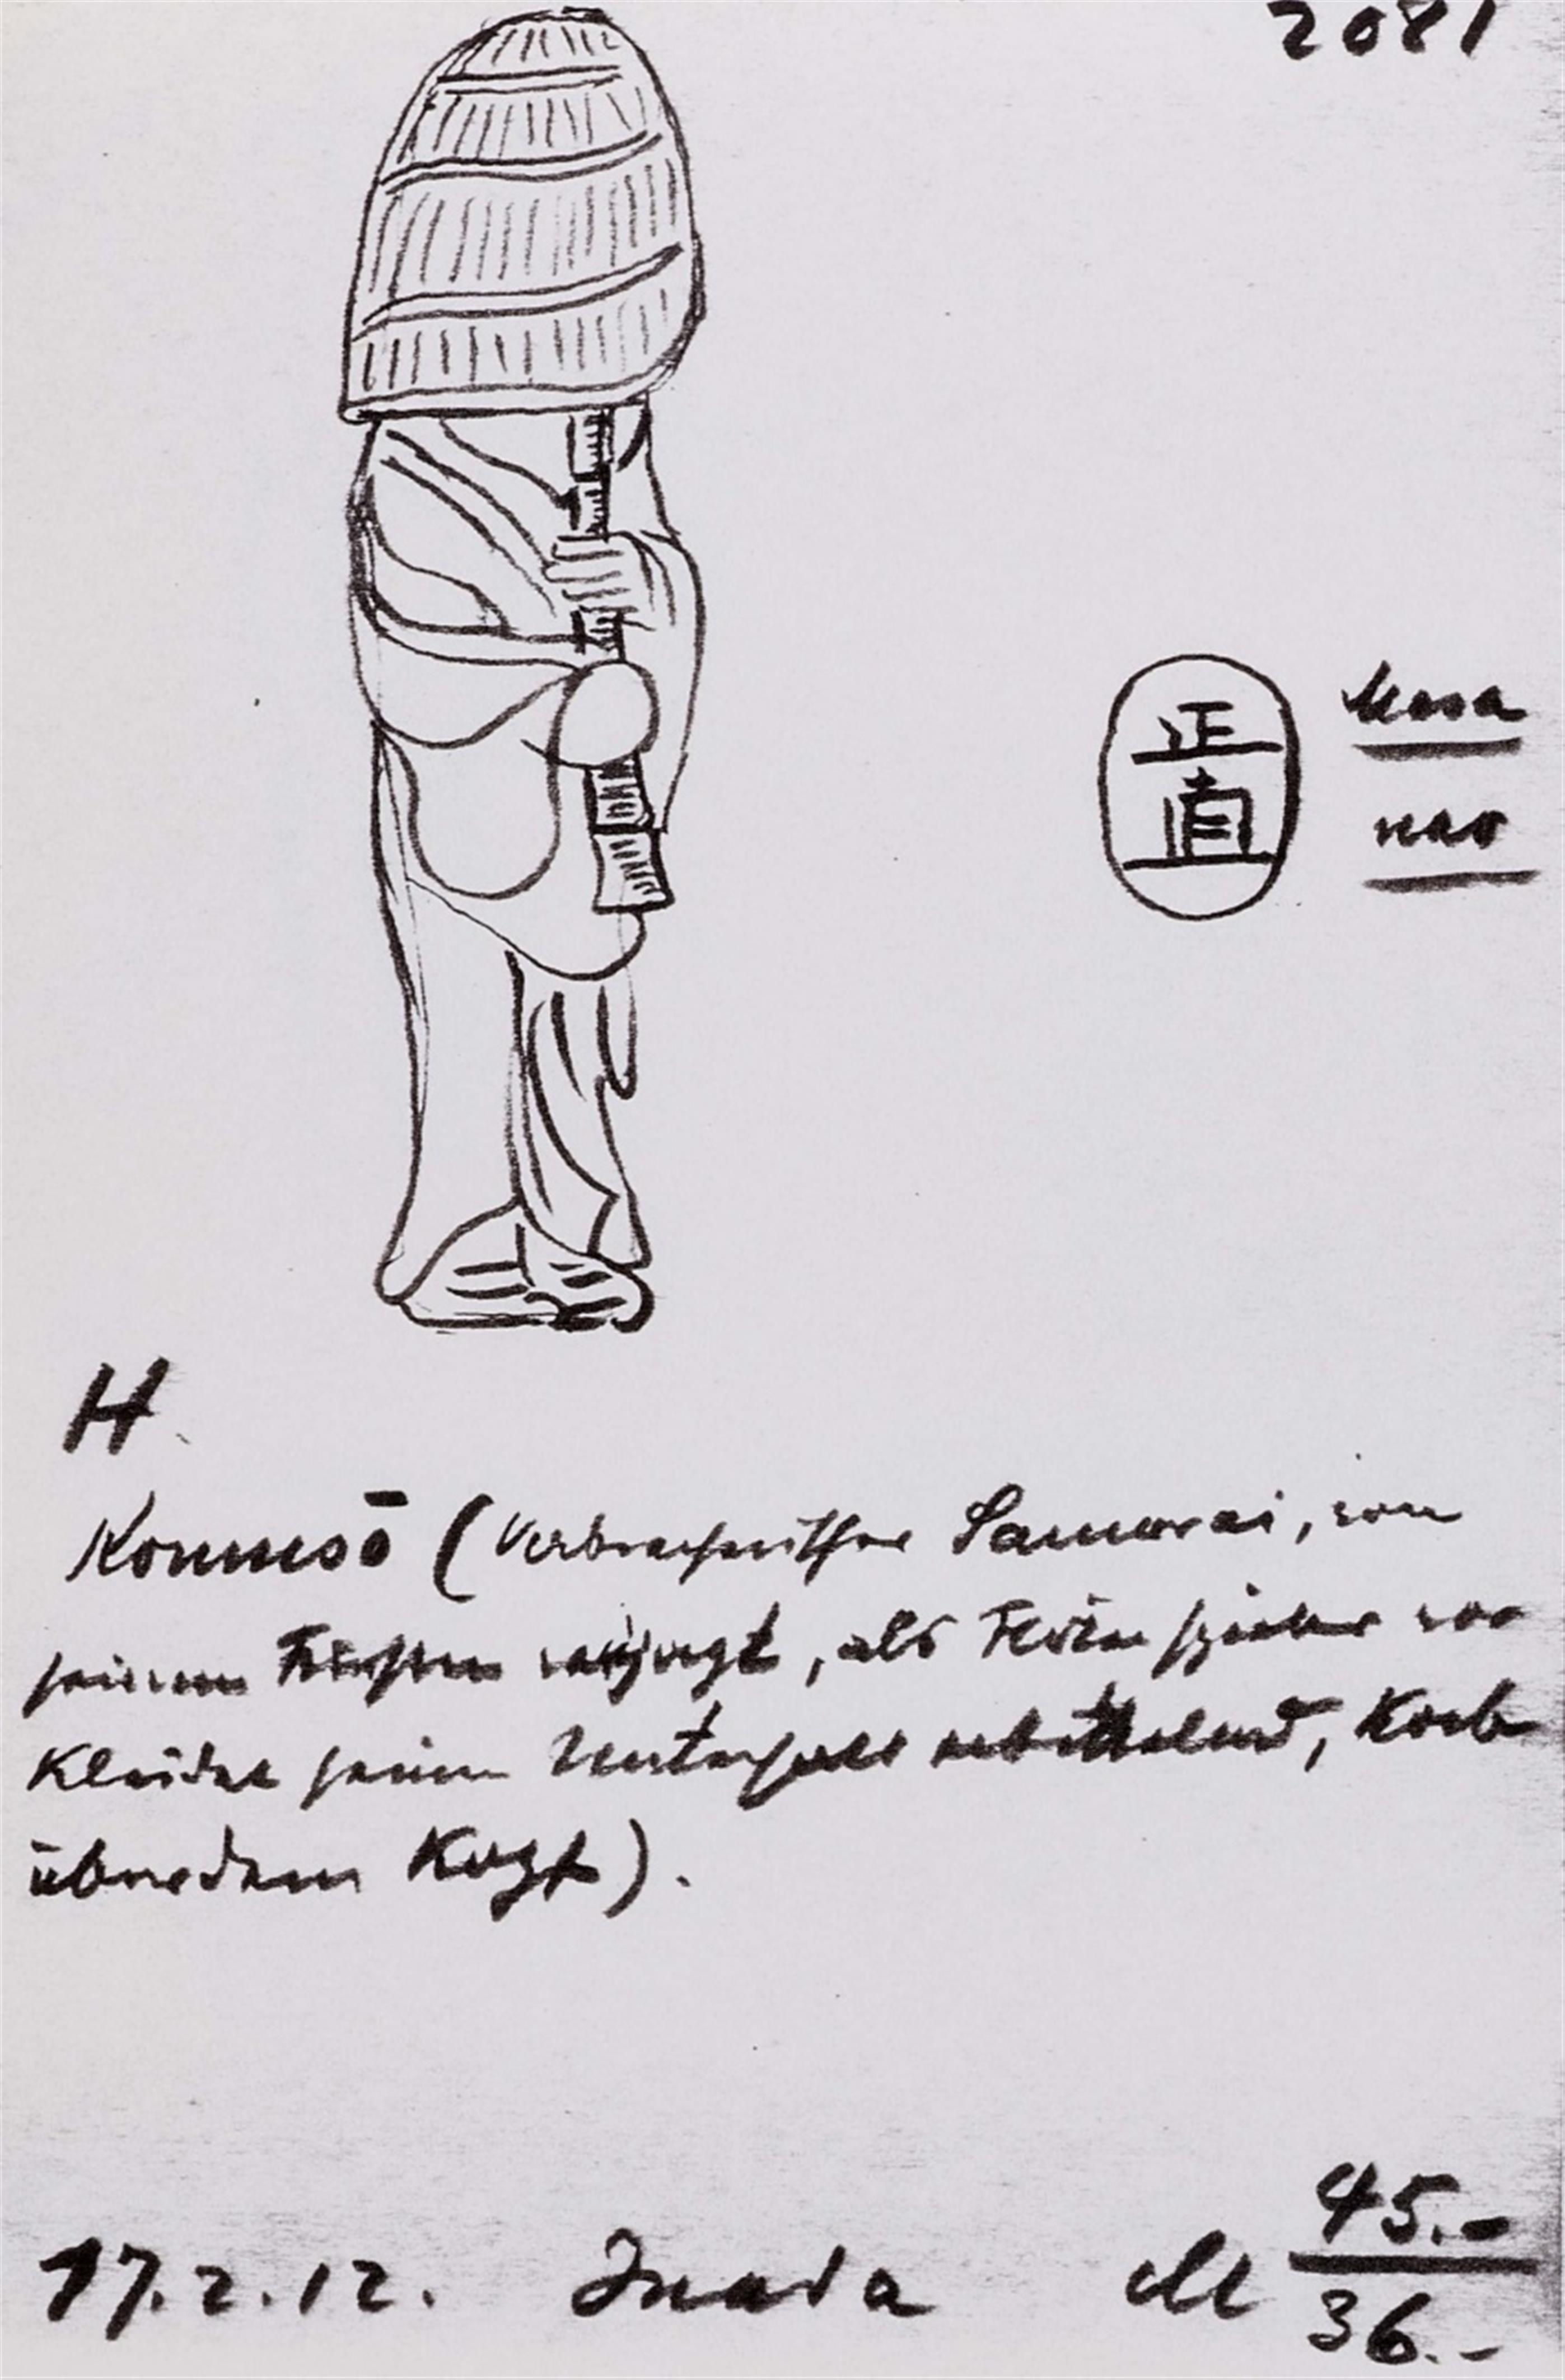 2081
正直
Masa
nao
H.
Komusō (Verbrecherischer Samurai, vom
seinem Fürsten verjagt, als Flötenspieler ver
kleidet seinen Unterhalt erbettelnd, Korb
über dem Kopf).
17.2.12. Inada M 45.-
36.-